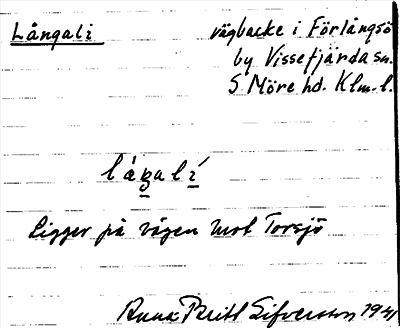 Långali vägbacke i Förlångsö
by Vissefjärda sn.
S. Möre hd. Klm. l.
lágalí
Ligger på vägen mot Torsjö
Anna Britt Sifversson 1941